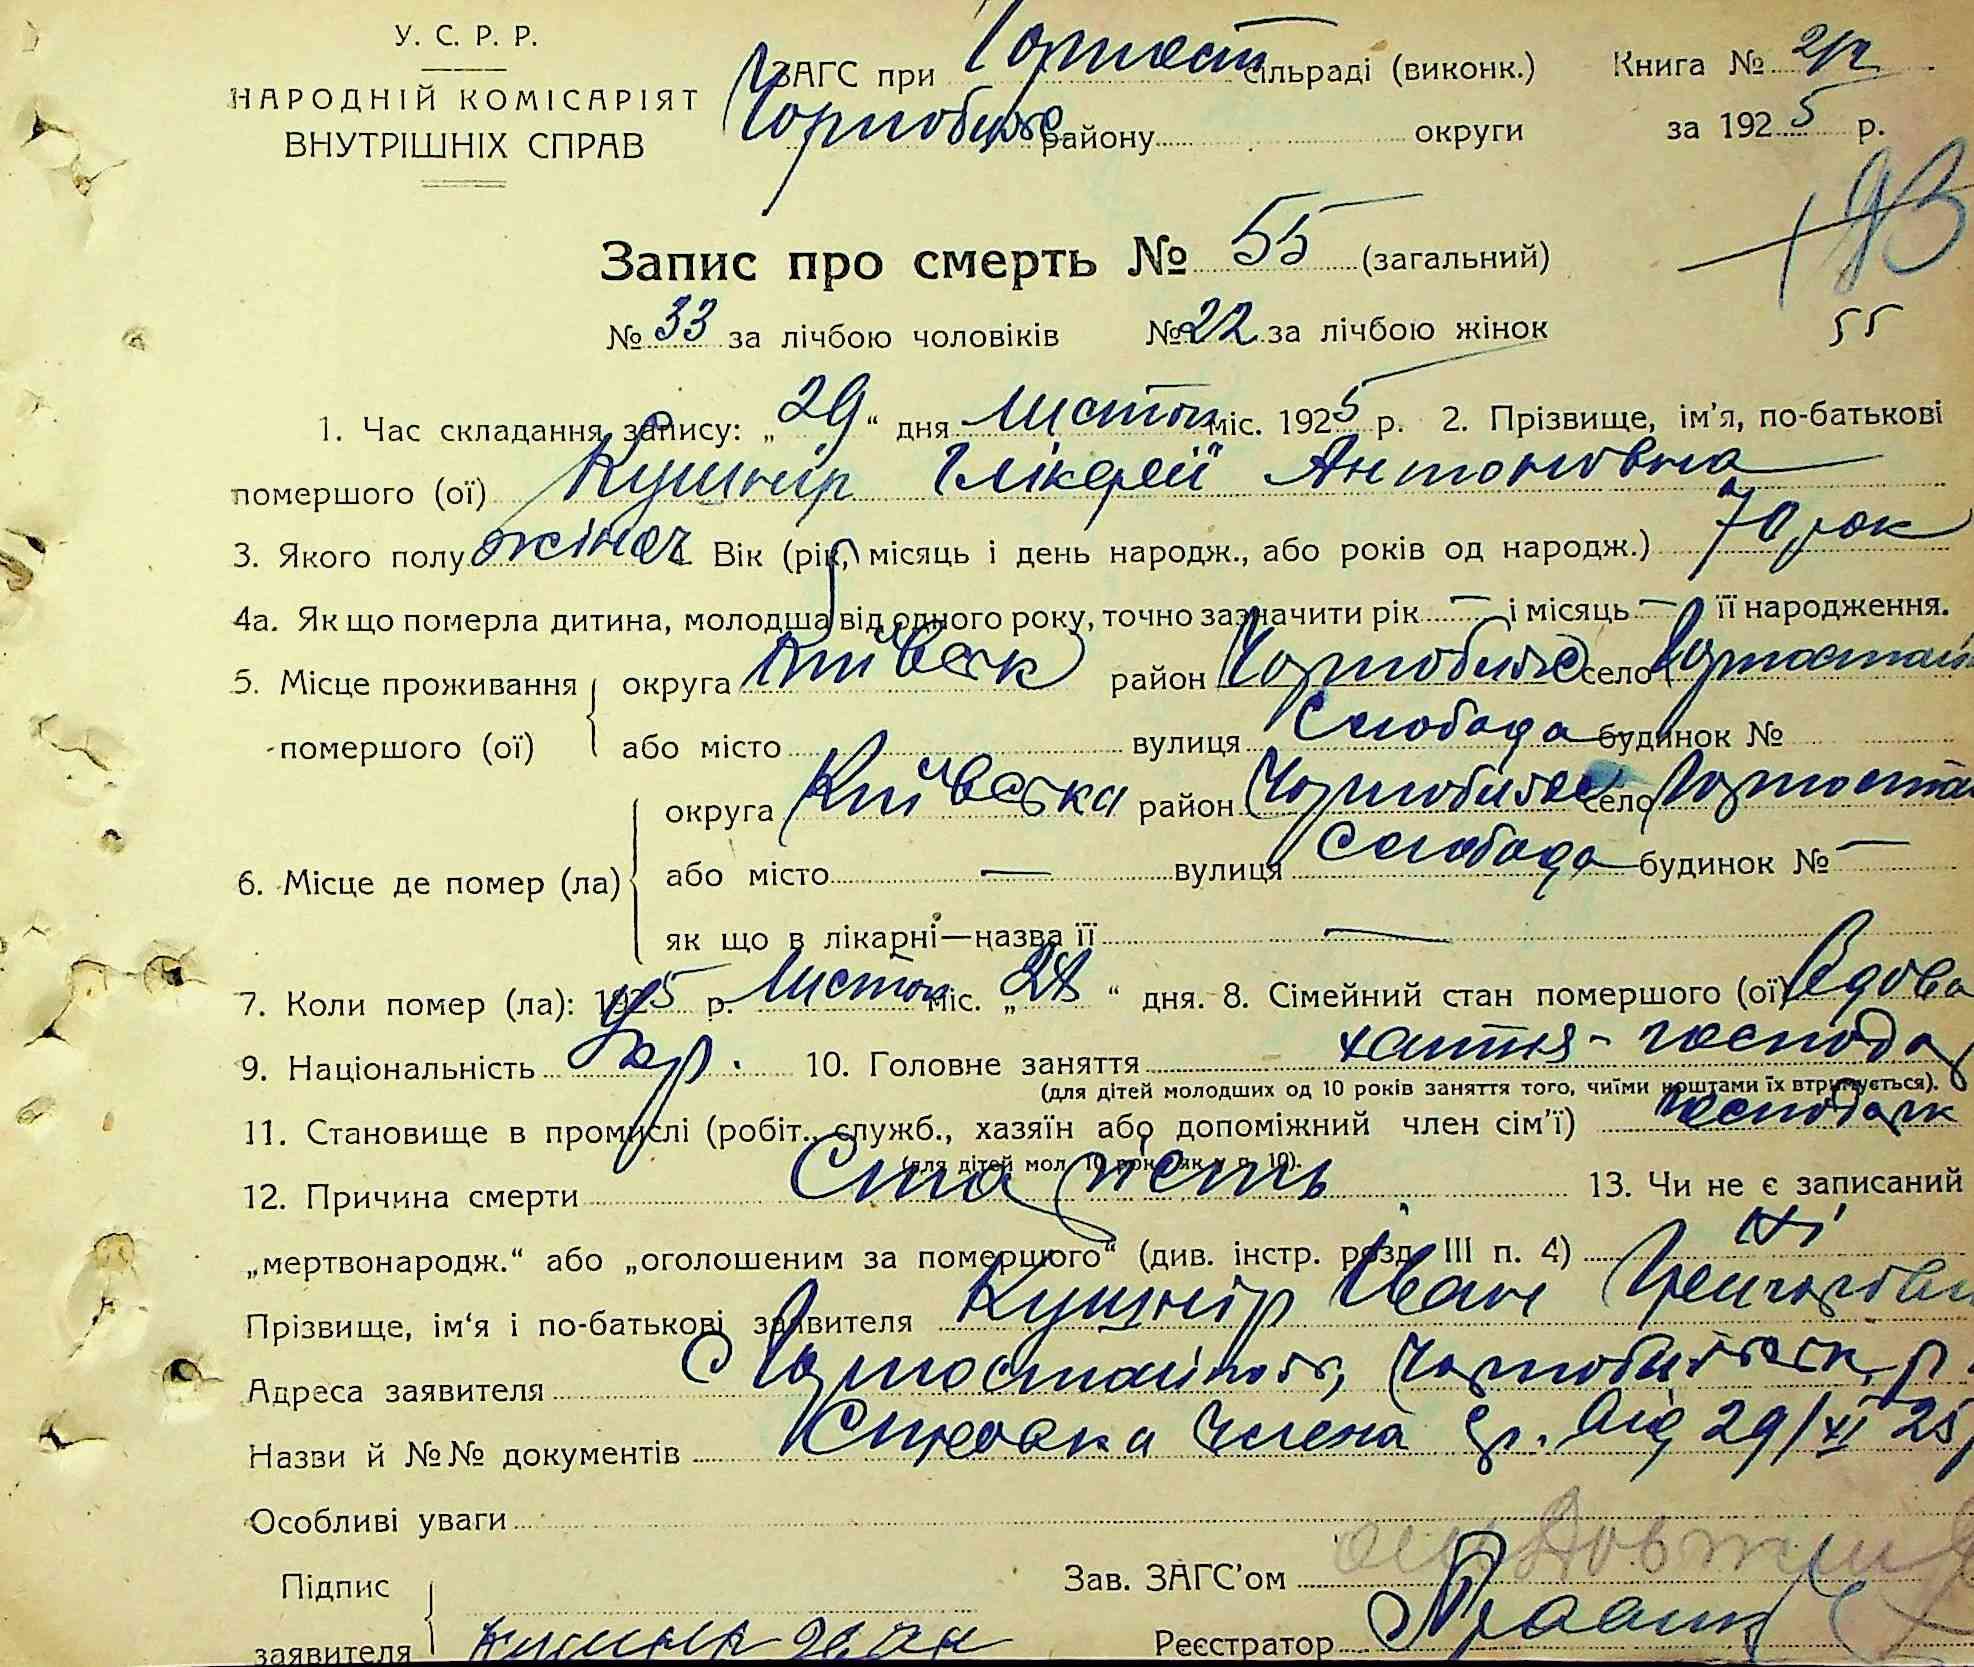 У. С. Р. Р.
НАРОДНІЙ КОМІСАРІЯТ
ВНУТРІШНІХ СПРАВ
ЗАГС при Горност сільраді (виконк.)
району округи
Книга №
за 1925 р.
193
Запис про смерть № 55 (загальний)
№ 33 за лічбою чоловіків № 22 за лічбою жінок
55
1. Час складання запису: „29“ дня Листоп міс. 1925 р. 2. Прізвище, ім’я, по-батькові
помершого (ої) Кушнір Глікерії Антоновна
3. Якого полу жіноч 4. Вік (рік, місяць і день народж., або років од народж.) 70 рок
4а. Як що померла дитина, молодша від одного року, точно зазначити рік — і місяць — її народження.
5. Місце проживання помершого (ої) округа Київськ район село
або місто вулиця Слобода будинок №
6. Місце де помер (ла) округа Київська район село Горноста
або місто — вулиця Слобода будинок № —
як що в лікарні—назва її —
7. Коли помер (ла): 1925 р. Листоп міс. „28“ дня. 8. Сімейний стан помершого (ої) Вдова
9. Національність Укр. 10. Головне заняття хатня-господар
(для дітей молодших од 10 років заняття того, чиїми коштами їх втримується).
11. Становище в промислі (робіт., служб., хазяїн або допоміжний член сім’ї)
(для дітей мол. 10 рок. як у п. 10).
12. Причина смерти Старість 13. Чи не є записаний
„мертвонародж.“ або „оголошеним за помершого“ (див. інстр. розд. III п. 4) Ні
Прізвище, ім‘я і по-батькові заявителя Кушнір Іван
Адреса заявителя с р.
Назви й №№ документів Справка члена від 29/XI 25
Особливі уваги
Підпис
заявителя Кушнир Иван
Зав. ЗАГС’ом
Реєстратор